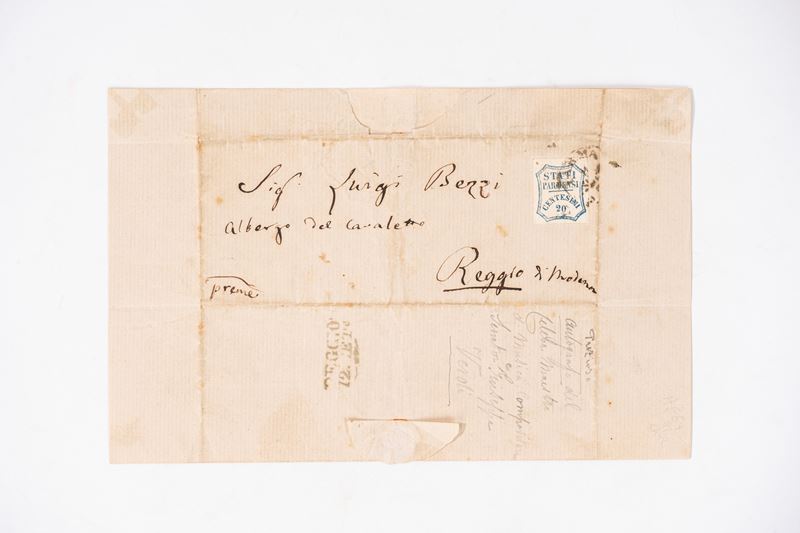 Sigr Luigi Bezzi
Albergo del Cavaletto
Reggio di Modena
preme
STATI
PARMENSI
CENTESIMI
20
REGGIO
autografo del
Celebre Maestro
di Musica Compositore
Senatore Giuseppe
Verdi